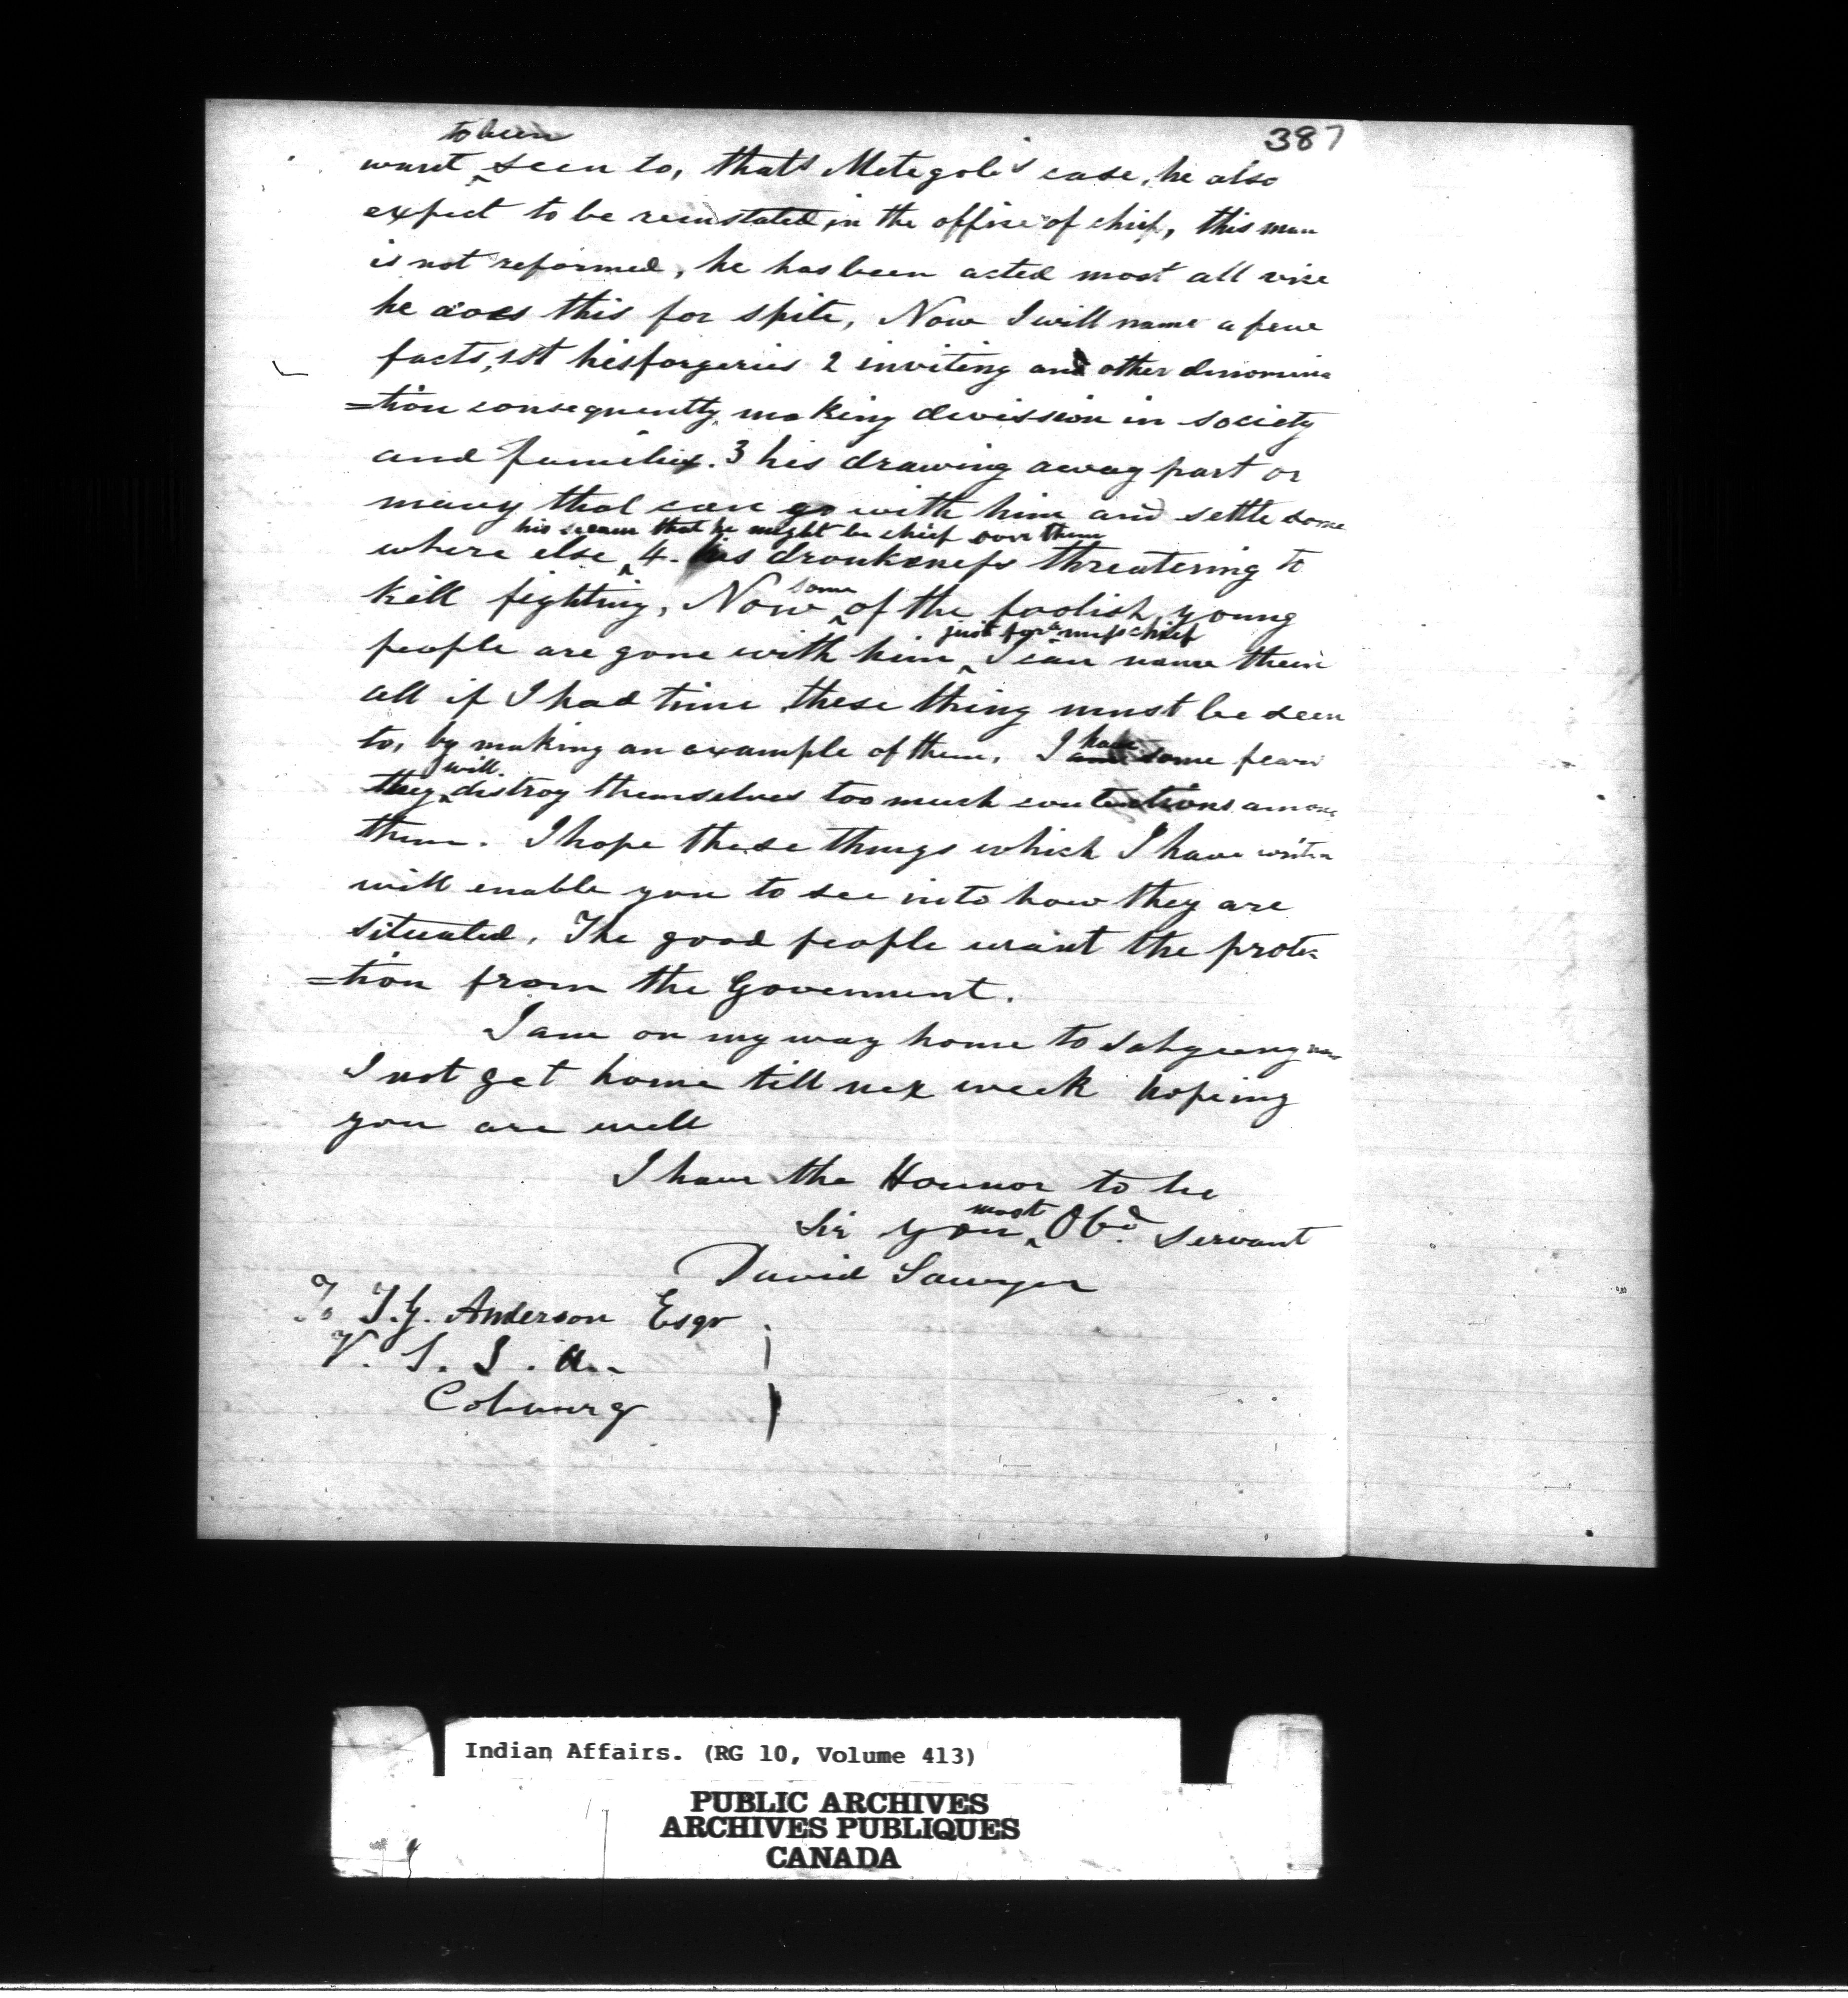 387
to been
want ^ seen to, that's Metegob's case, he also
expect to be reinstated in the office of chief, this man
is not reformed, he has been acted most all vice
he does this for spite, Now I will name a few
facts, 1st his forgeries 2 inviting and other denomina
=tion consequently making devission in society
and families. 3 his drawing away part or
many that can go with him and settle some
his that he might be chief over them
where else ^ 4. his drunkness threatering to
kill fighting, Now ^ some of the foolish young
just for a misschief
people are gone with him ^ I can name them
all if I had time these thing must be seen
to, by making an example of them, I have some fears
will
they ^ distroy themselves too much contentions among
them. I hope these things which I have writen
will enable you to see into how they are
situated, The good people want the protec
=tion from the Government.
I am on my way home to Sahgeeng
I not get home till nex week hopeing
you are well
I have the Hounor to be
Sir your ^ most Obd. Servant
David Sawyer
To T.G. Anderson Esqr
V. S. I. A.
Cobourg
Indian Affairs. (RG 10, Volume 413)
PUBLIC ARCHIVES
ARCHIVES PUBLIQUES
CANADA